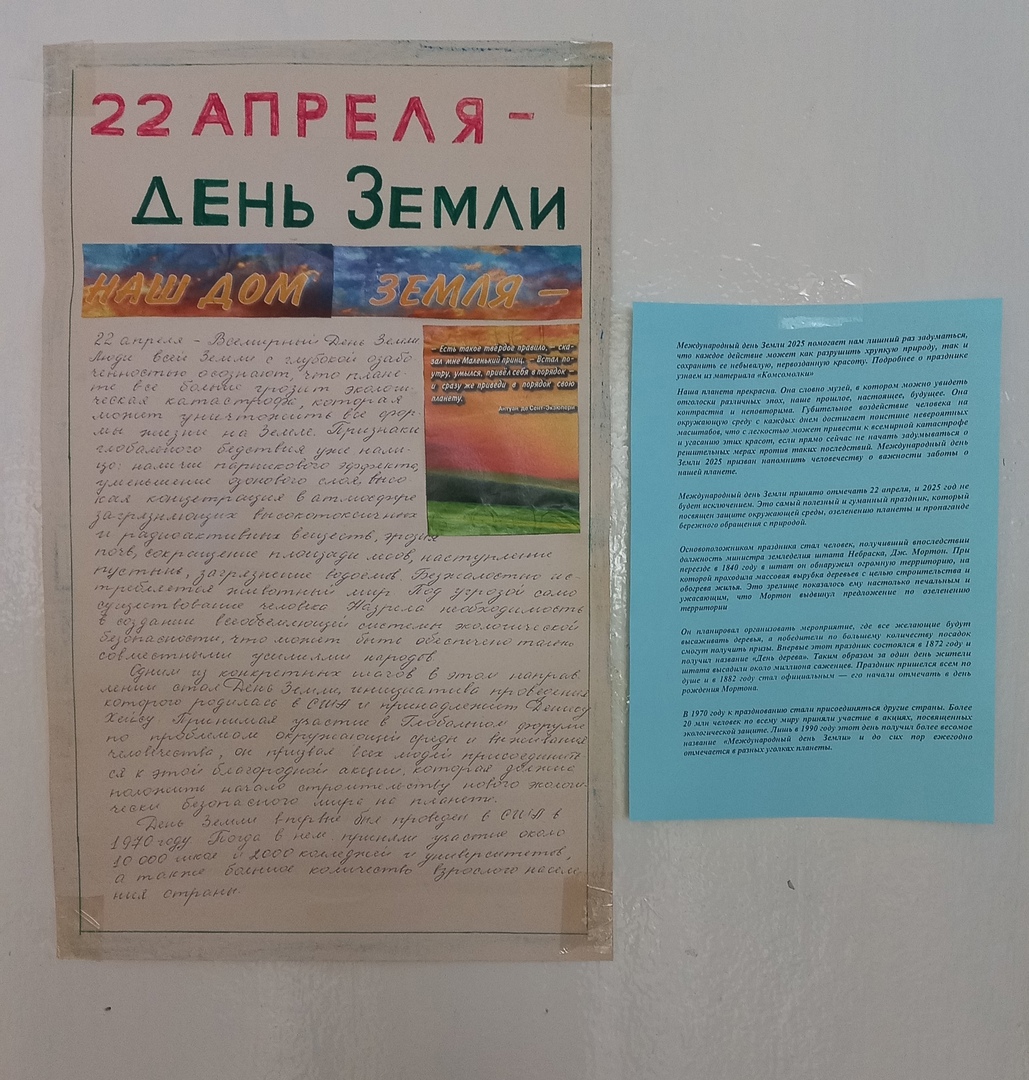 22 АПРЕЛЯ –
ДЕНЬ ЗЕМЛИ
НАШ ДОМ ЗЕМЛЯ –
22 апреля – Всемирный День Земли
Люди всей Земли с глубокой озабо
ченностью осознают, что плане-
те все больше грозит экологи-
ческая катастрофа, которая
может уничтожить все фор-
мы жизни на Земле. Признаки
глобального бедствия уже нали-
цо: наличие парникового эффекта,
уменьшение озонового слоя, высо-
кая концетрация в атмосфере
загрязняющих высокотоксичных
и радиоактивных веществ, эрозия
почв, сокращение площади лесов, наступление
пустынь, загрязнение водоемов. Безжалостно ис-
требляется животный мир Под угрозой само
существование человека Назрела необходимость
в создании всеобъемлющей системы экологической
безопасности, что может быть обеспечено только
совместными усилиями народов
Одним из конкретных шагов в этом направ-
лении стал День Земли, инициатива проведения
которого родилась в США и принадлежит Денису
Хейсу. Принимая участие в Глобальном форуме
по проблемам окружающей среды и выживания
человечества, он призвал всех людей присоединить-
ся к этой благородной акции, которая должна
положить начало строительству нового экологи-
чески безопасного мира на планете.
День Земли впервые был проведен в США в
1970 году Тогда в нем приняли участие около
10 000 школ и 2000 колледжей и университетов,
а также большое количество взрослого населе-
ния страны.
– Есть такое твёрдое правило, – ска-
зал мне Маленький принц. – Встал по-
утру, умылся, привёл себя в порядок –
и сразу же приведи в порядок свою
планету.
Антуан де Сент-Экзюпери
Международный день Земли 2025 помогает нам лишний раз задуматься,
что каждое действие может как разрушить хрупкую природу, так и
сохранить ее небывалую, первозданную красоту. Подробнее о празднике
узнаем из материала «Комсомолки»
Наша планета прекрасна. Она словно музей, в котором можно увидеть
отголоски различных эпох, наше прошлое, настоящее, будущее. Она
контрастна и неповторима. Губительное воздействие человека на
окружающую среду с каждым днем достигает поистине невероятных
масштабов, что с легкостью может привести к всемирной катастрофе
и угасанию этих красот, если прямо сейчас не начать задумываться о
решительных мерах против таких последствий. Международный день
Земли 2025 призван напомнить человечеству о важности заботы о
нашей планете.
Международный день Земли принято отмечать 22 апреля, и 2025 год не
будет исключением. Это самый полезный и гуманный праздник, который
посвящен защите окружающей среды, озеленению планеты и пропаганде
бережного обращения с природой.
Основоположником праздника стал человек, получивший впоследствии
должность министра земледелия штата Небраска, Дж. Мортон. При
переезде в 1840 году в штат он обнаружил огромную территорию, на
которой проходила массовая вырубка деревьев с целью строительства и
обогрева жилья. Это зрелище показалось ему настолько печальным и
ужасающим, что Мортон выдвинул предложение по озеленению
территории
Он планировал организовать мероприятие, где все желающие будут
высаживать деревья, а победители по большему количеству посадок
смогут получить призы. Впервые этот праздник состоялся в 1872 году и
получил название «День дерева». Таким образом за один день жители
штата высадили около миллиона саженцев. Праздник пришелся всем по
душе и в 1882 году стал официальным — его начали отмечать в день
рождения Мортона.
В 1970 году к празднованию стали присоединяться другие страны. Более
20 млн человек по всему миру приняли участие в акциях, посвященных
экологической защите. Лишь в 1990 году этот день получил более весомое
название «Международный день Земли» и до сих пор ежегодно
отмечается в разных уголках планеты.